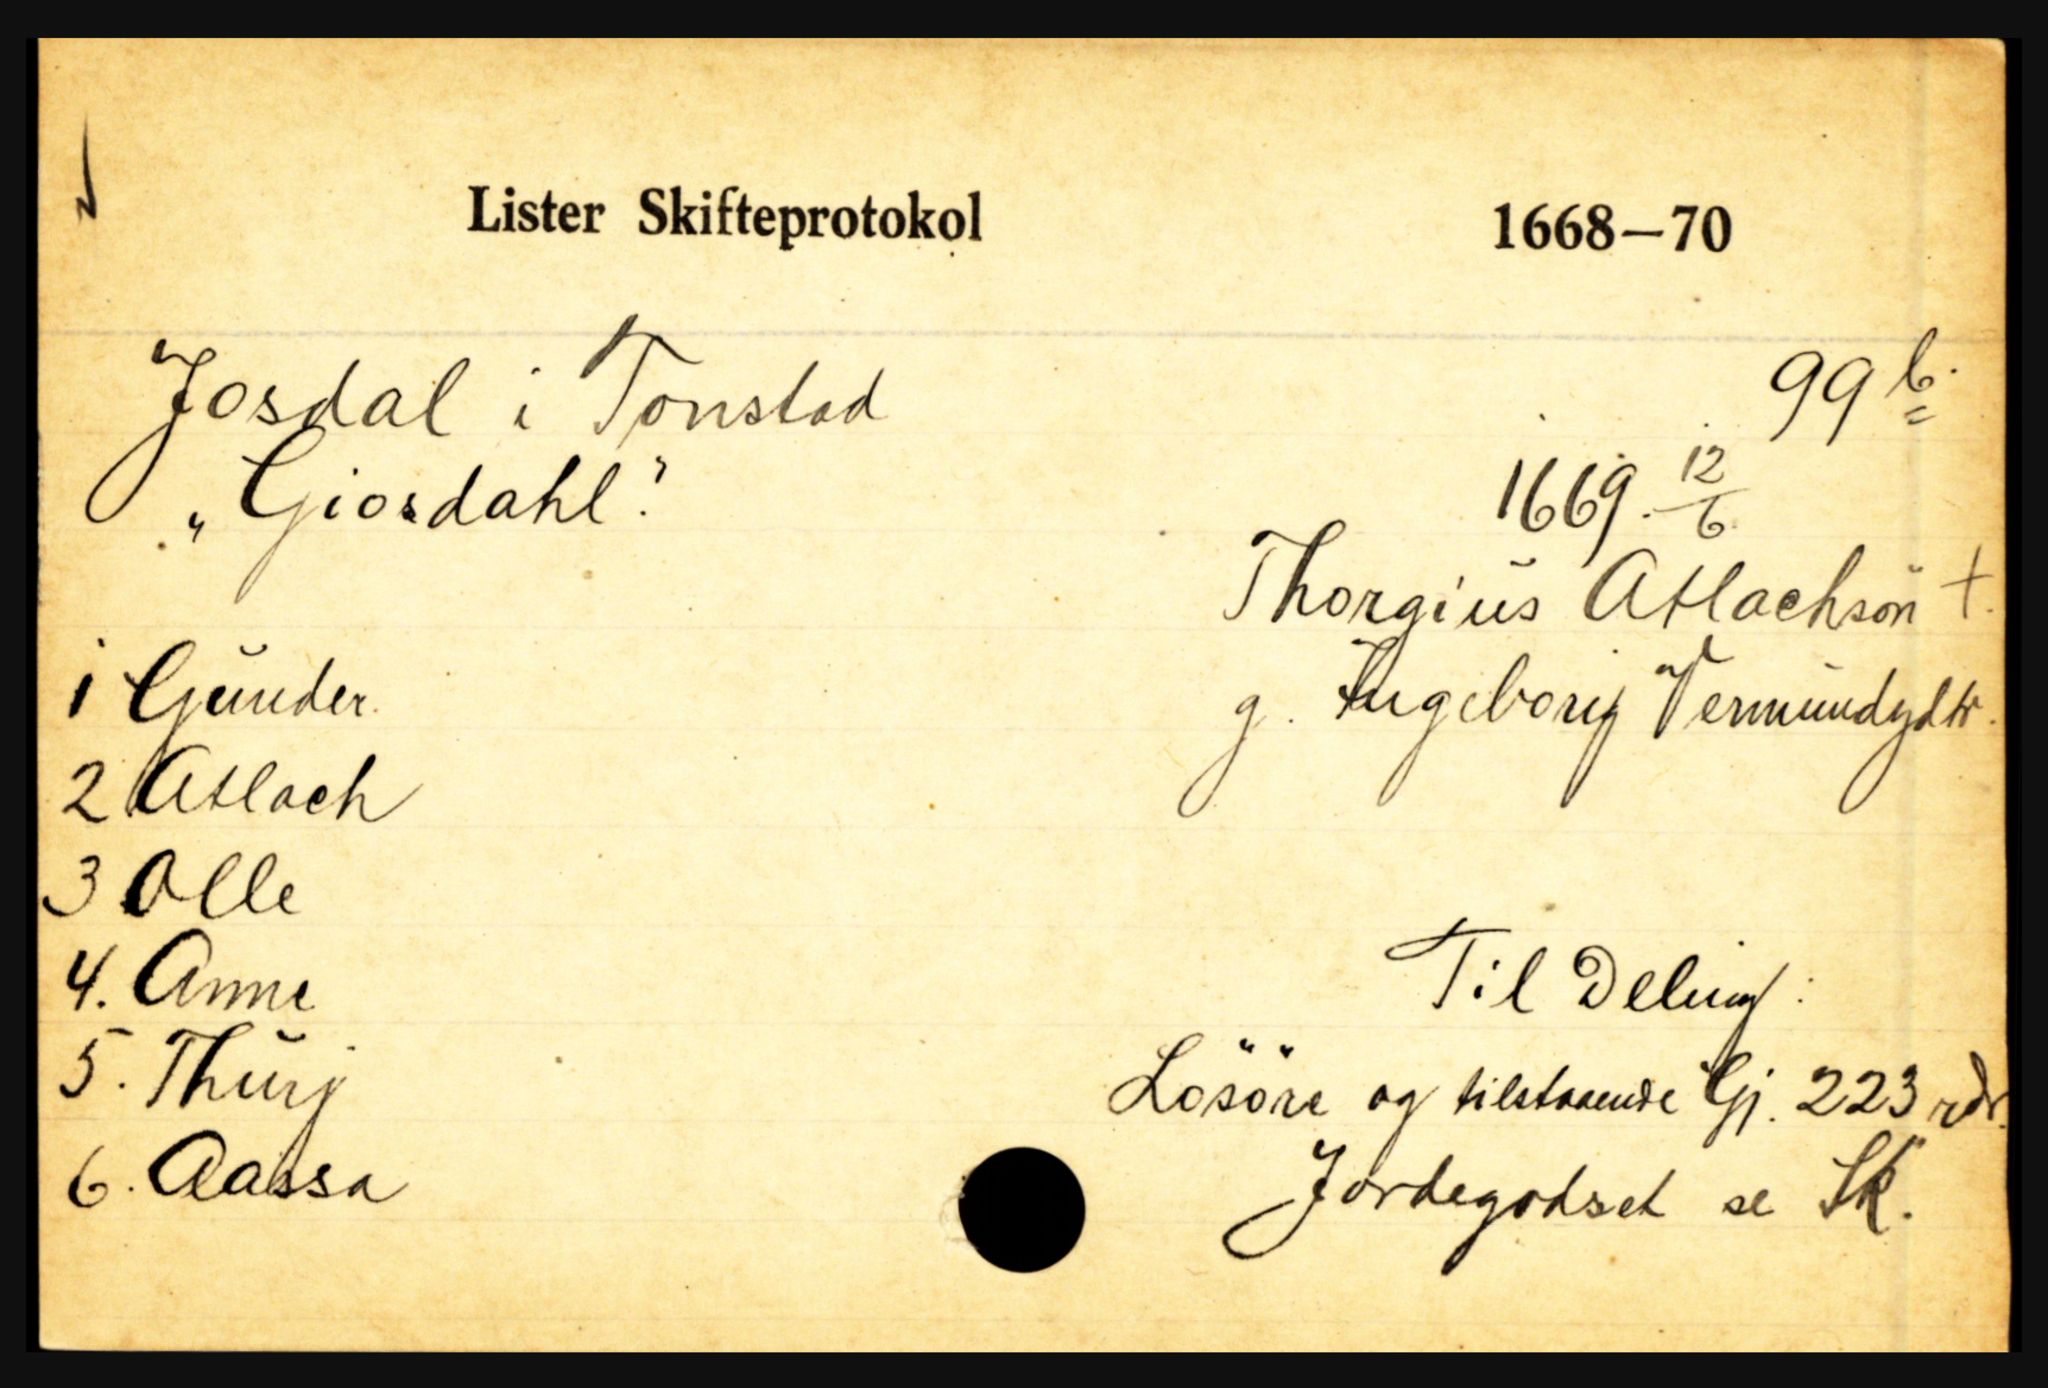 Lister Skifteprotokol 1668–70
Josdal i Tonstad 99 b.
„Giosdahl". 1669. 12/6
Thorgiüs Atlachsön †.
1 Günder. g. Ingeborg Vermündzdtr.
2 Atlach
3 Olle
4. Anne Til Deling:
5. Thürj Lösöre og tilstaaende Gj. 223 rdr.
6. Aassa Jordegodset se Sk.